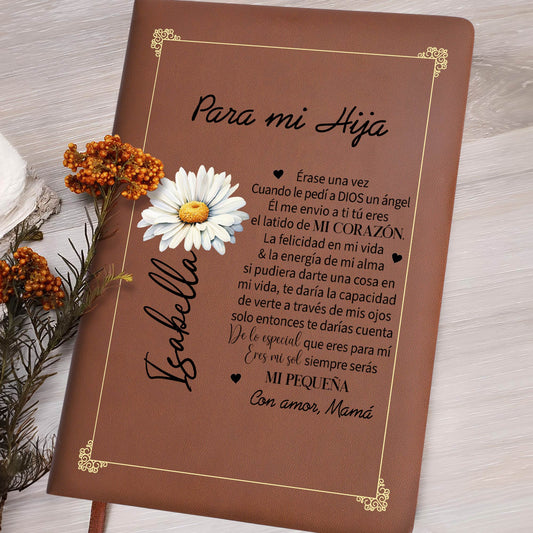 Para mi Hija
Érase una vez
Cuando le pedí a DIOS un ángel
Él me envio a ti tú eres
el latido de MI CORAZÓN.
La felicidad en mi vida
& la energía de mi alma
si pudiera darte una cosa en
mi vida, te daría la capacidad
de verte a través de mis ojos
solo entonces te darías cuenta
De lo especial que eres para mí
Eres mi sol siempre serás
MI PEQUEÑA
Con amor, Mamá
Isabella